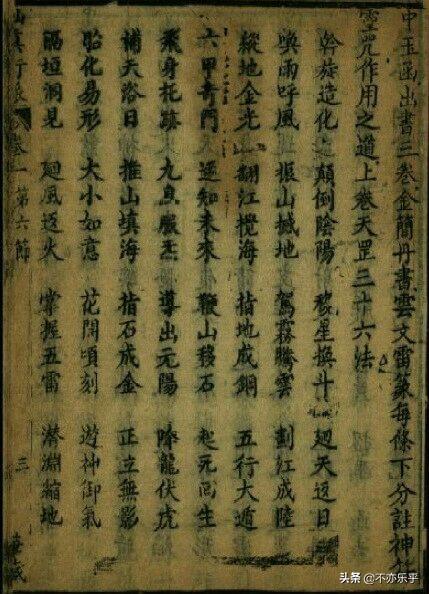 中玉函出書三卷金簡丹書雲文雷篆每條下分註神
靈咒作用之道上卷天罡三十六法
斡旋造化 顛倒陰陽 移星換斗 廻天返日
喚雨呼風 振山撼地 駕霧騰雲 劃江成陸
縱地金光 翻江攪海 指地成鋼 五行大遁
六甲奇門 逆知未來 鞭山移石 起死回生
飛身托跡 九息服炁 導出元陽 降龍伏虎
補天浴日 推山填海 指石成金 正立無影
胎化易形 大小如意 花開頃刻 遊神御氣
隔垣洞見 廻風返火 掌握五雷 潛淵縮地
卷一第六節 三
头条 @不亦乐乎